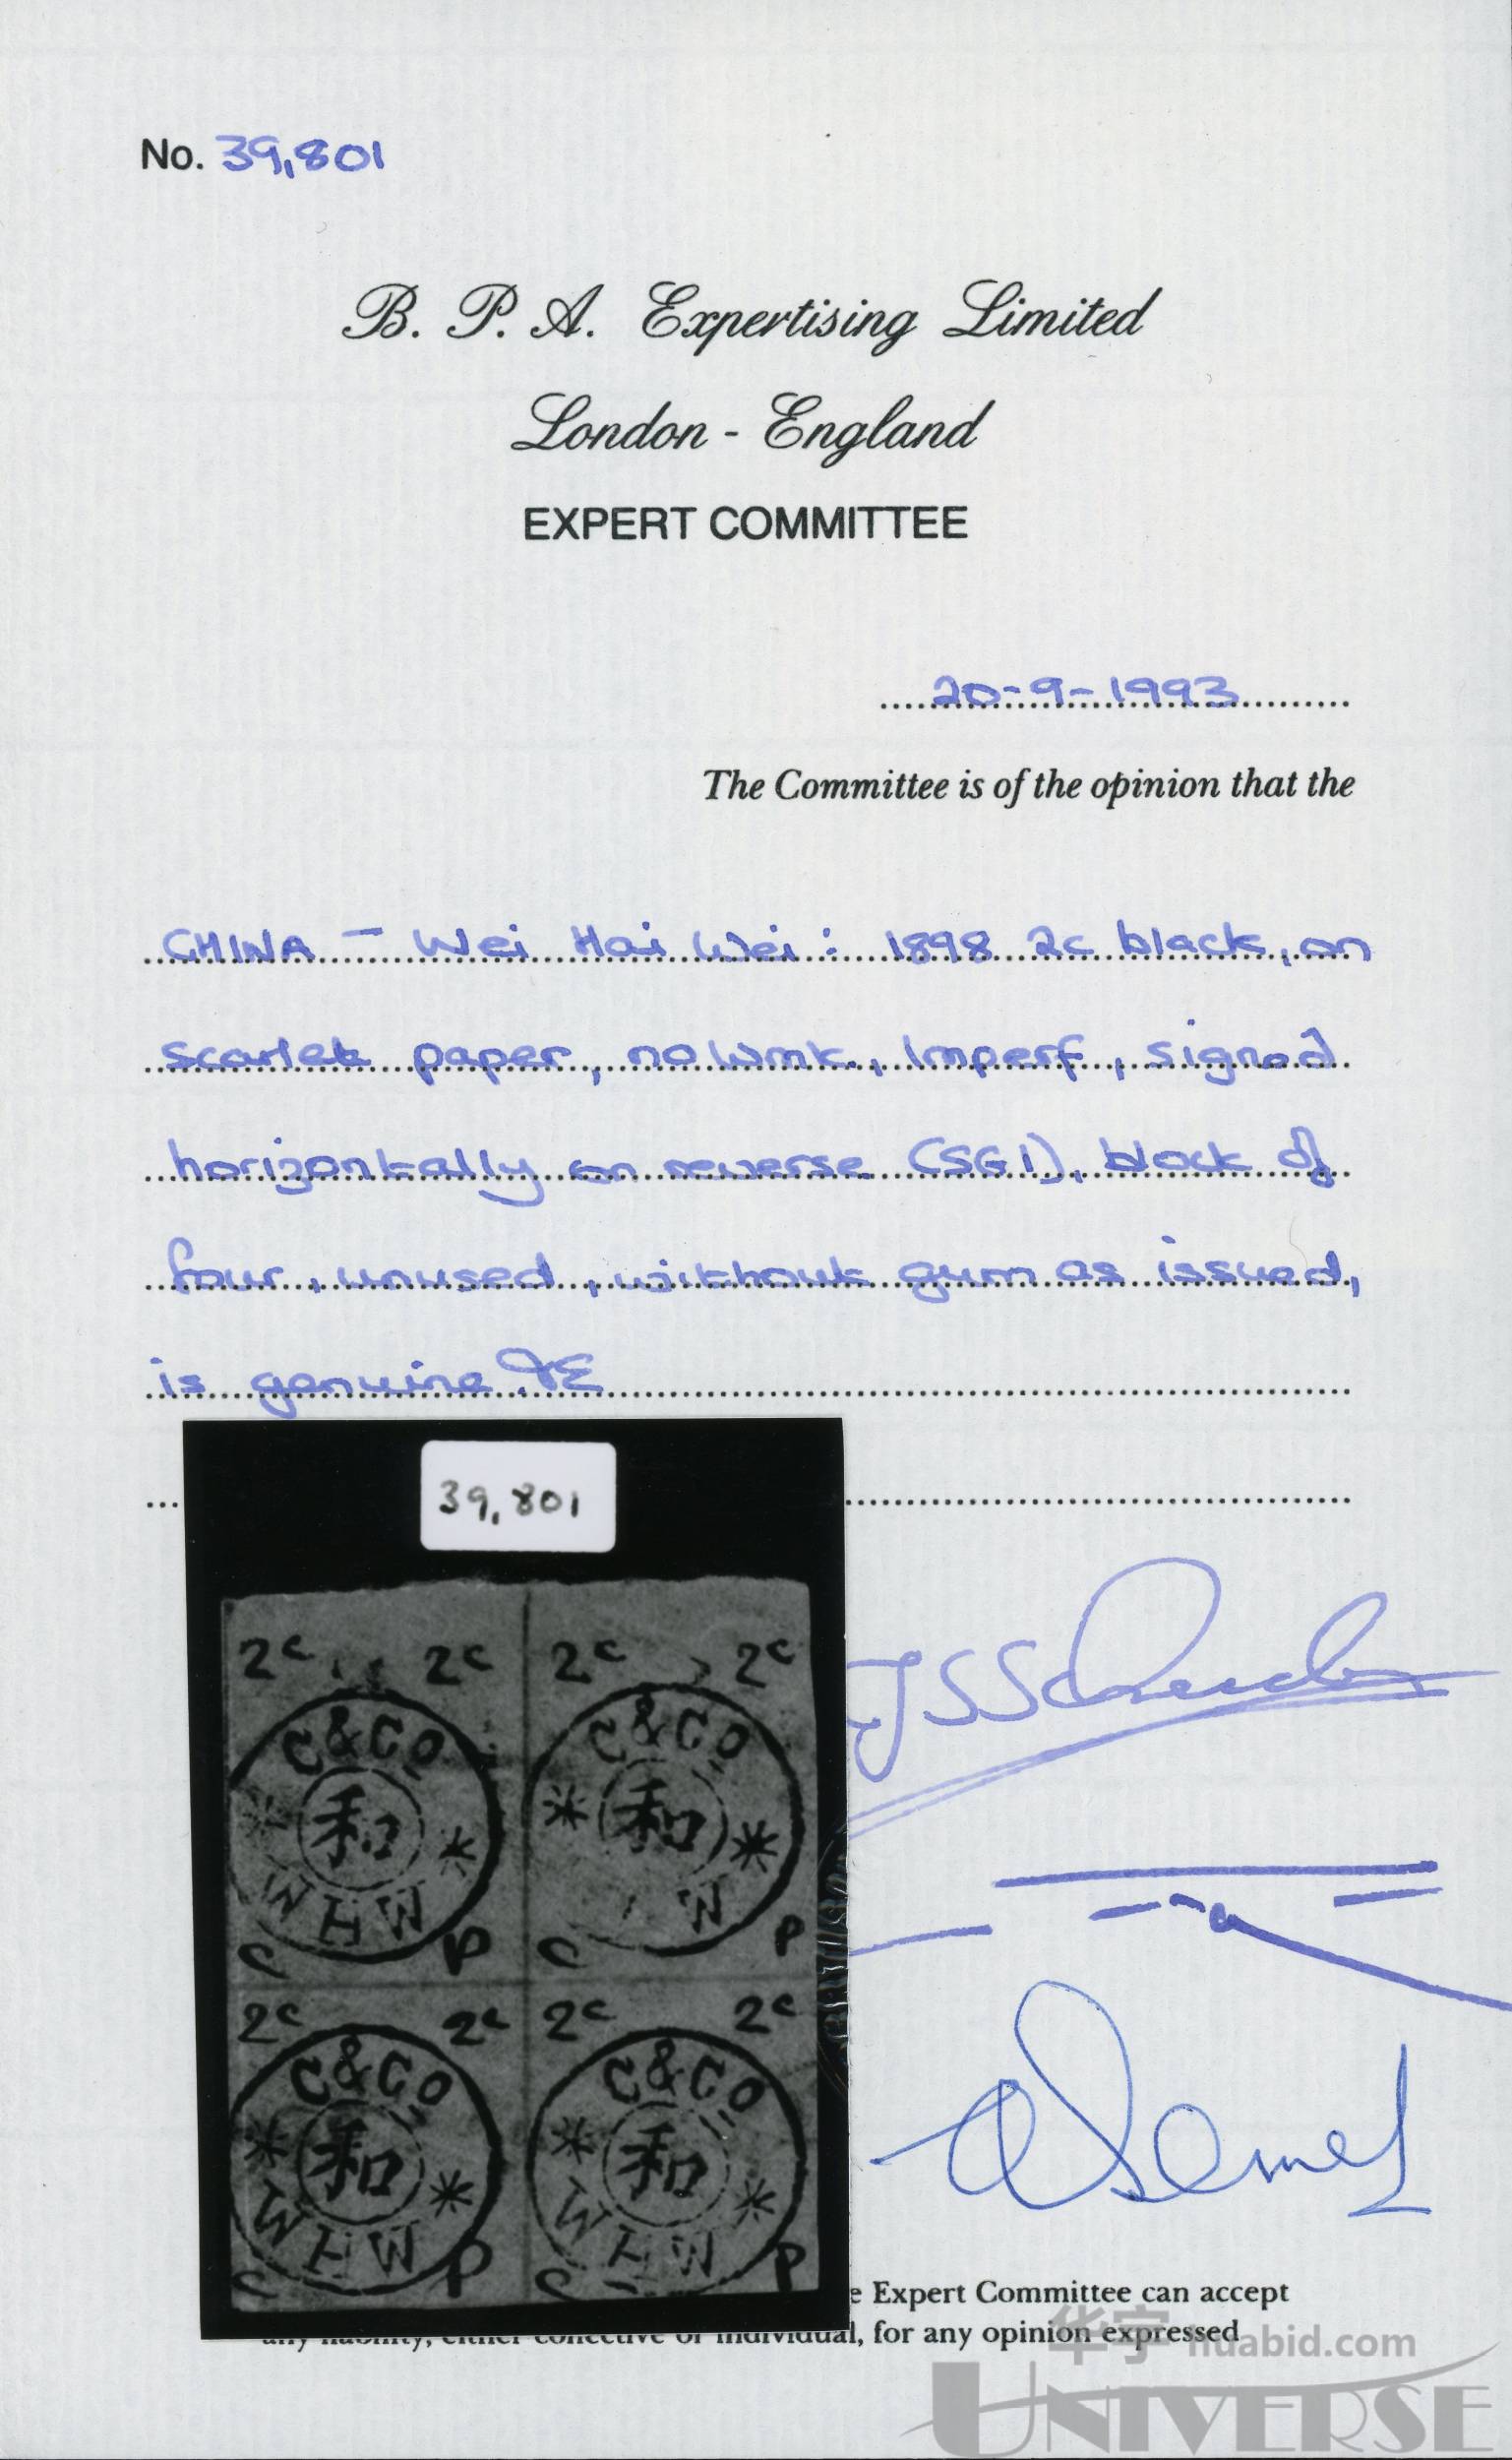 No. 39,801
B. P. A. Expertising Limited
London - England
EXPERT COMMITTEE
20-9-1993
The Committee is of the opinion that the
CHINA - Wei Hai Wei: 1898 2c black, on
scarlet paper, no wmk., imperf, signed
horizontally on reverse (SG1), block of
four, unused, without gum as issued,
is genuine
39,801
2c 2c 2c 2c
C&CO C&CO
和 和
WHW W
C P C P
2c 2c 2c 2c
C&CO C&CO
和 和
WHW WHW
C P C P
Expert Committee can accept
any liability, either collective or individual, for any opinion expressed
华宇 huabid.com
UNIVERSE